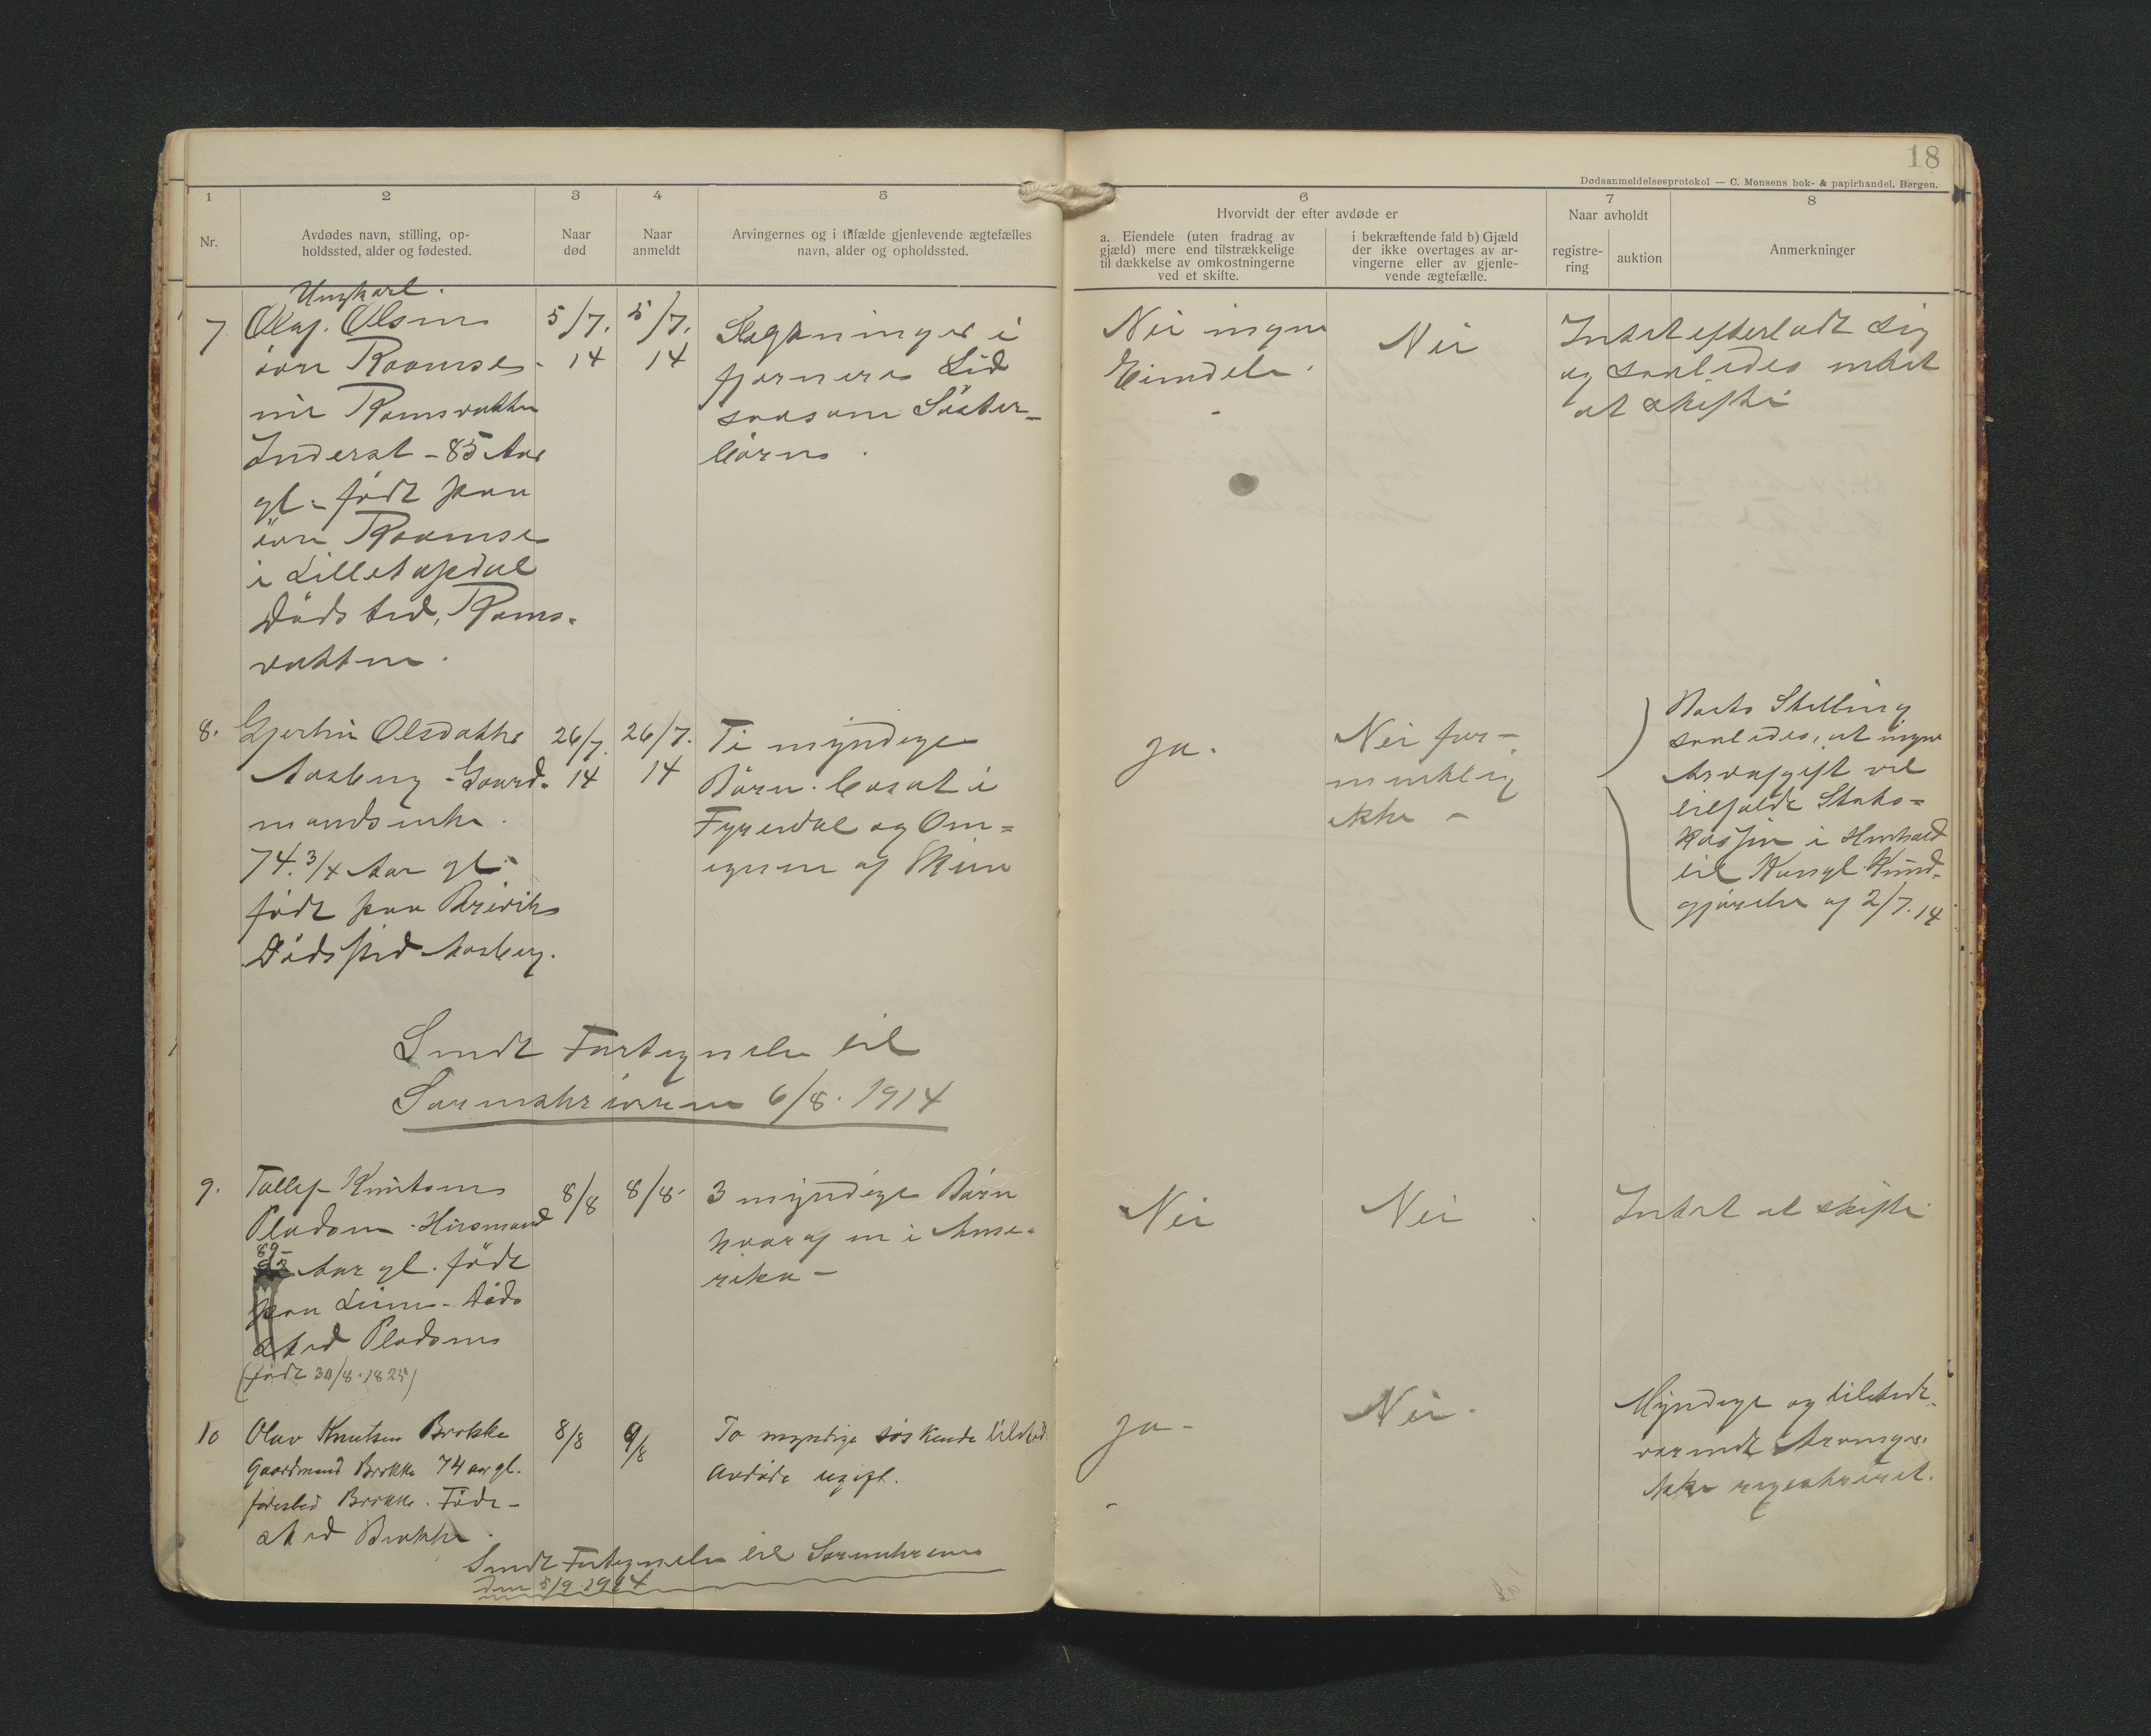 18
Dødsanmeldelsesprotokol — C. Monsens bok- & papirhandel, Bergen.
1
2
3
4
5
6
7
8
Nr.
Avdødes navn, stilling, op-
holdssted, alder og fødested.
Naar
død
Naar
anmeldt
Arvingernes og i tilfælde gjenlevende ægtefælles
navn, alder og opholdssted.
Hvorvidt der efter avdøde er
a. Eiendele (uten fradrag av
gjæld) mere end tilstrækkelige
til dækkelse av omkostningerne
ved et skifte.
i bekræftende fald b) Gjæld
der ikke overtages av ar-
vingerne eller av gjenle-
vende ægtefælle.
Naar avholdt
registre-
ring
auktion
Anmerkninger
Ungkarl.
7 Olaf. Olsen
övre Roamse.
Inderst - 85 Aar
gl - födt paa
övre Roamse
i Lilletopdal
Döds sted, Roms-
vatten.
5/7.
14
5/7.
14
Slegtninger i
fjernere Led
saasom Söster-
börn.
Nei ingen
Eiendele.
Nei
Intet efterladt sig
og saaledes intet
at skifte
8. Gjertin Olsdatter
Aasberg - Gaard-
mandsenke.
74.3/4 Aar gl.
födt paa Breivik
Dödssted Aasberg.
26/7.
14
26/7.
14
Ti myndige
Börn. bosat i
Fyresdal og Om-
egnen af Skien
Ja.
Nei for-
mentlig
ikke -
Boets Stilling
saaledes, at ingen
Arveafgift vil
tilfalde Stats-
kassen i Henhold
til Kongl. Kund-
gjörelse af 2/7. 14
Sendt Fortegnelse til
Sorenskriveren 6/8. 1914
9. Tallef Knutsen
Pladsen - Husmand
89-
Aar gl. födt
paa - Döds
sted Pladsen
(födt 30/8. 1825)
8/8
8/8.
3 myndige Börn
hvoraf en i Ame-
rika -
Nei
Nei
Intet at skifte
10 Olav Knutsen Brokke
Gaardmand Brokke 74 aar gl.
fødested Brokke. Döds-
sted Brokke.
8/8
9/8
To myndige søskende tilsted.
Avdöde ugift.
Ja -
Nei.
Myndige og tilstede-
værende Arvinger.
Ikke registreret.
Sendt Fortegnelse til Sorenskriveren
den 5/9. 1914